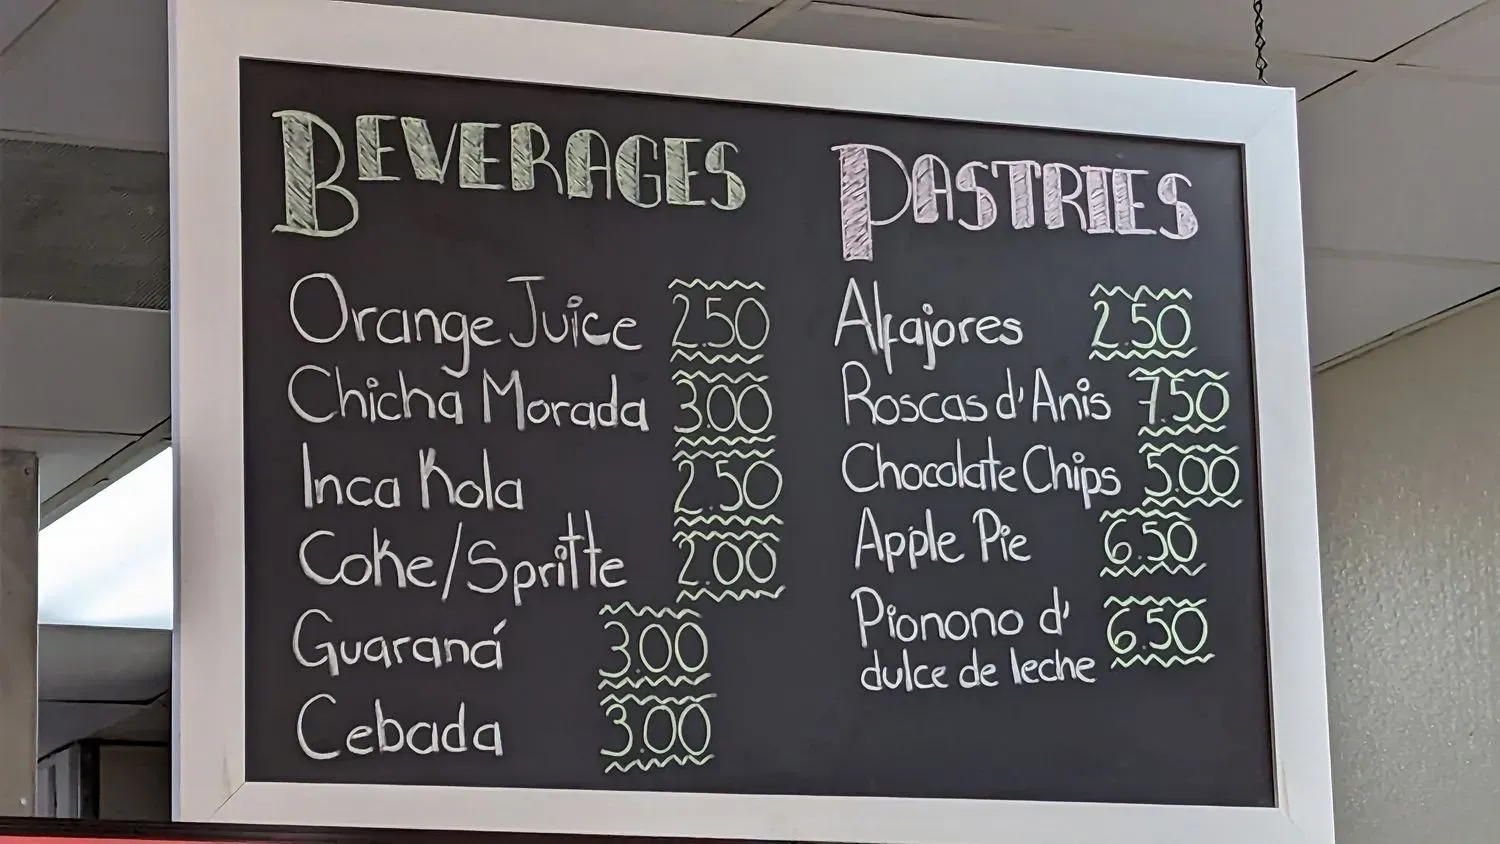 BEVERAGES
Orange Juice 2.50
Chicha Morada 3.00
Inca Kola 2.50
Coke/Spritte 2.00
Guaraná 3.00
Cebada 3.00
PASTRIES
Alfajores 2.50
Roscas d'Anis 7.50
Chocolate Chips 5.00
Apple Pie 6.50
Pionono d' 6.50
dulce de leche